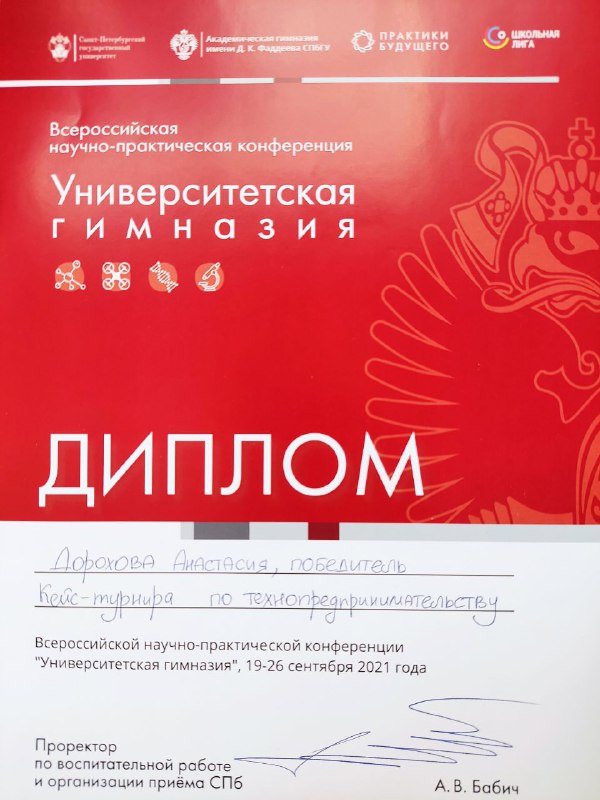 Санкт-Петербургский
государственный
университет
Академическая гимназия
имени Д. К. Фаддеева СПбГУ
ПРАКТИКИ
БУДУЩЕГО
ШКОЛЬНАЯ
ЛИГА
Всероссийская
научно-практическая конференция
Университетская
гимназия
ДИПЛОМ
Дорохова Анастасия, победитель
Кейс-турнира по технопредпринимательству
Всероссийской научно-практической конференции
"Университетская гимназия", 19-26 сентября 2021 года
Проректор
по воспитательной работе
и организации приёма СПб
А. В. Бабич